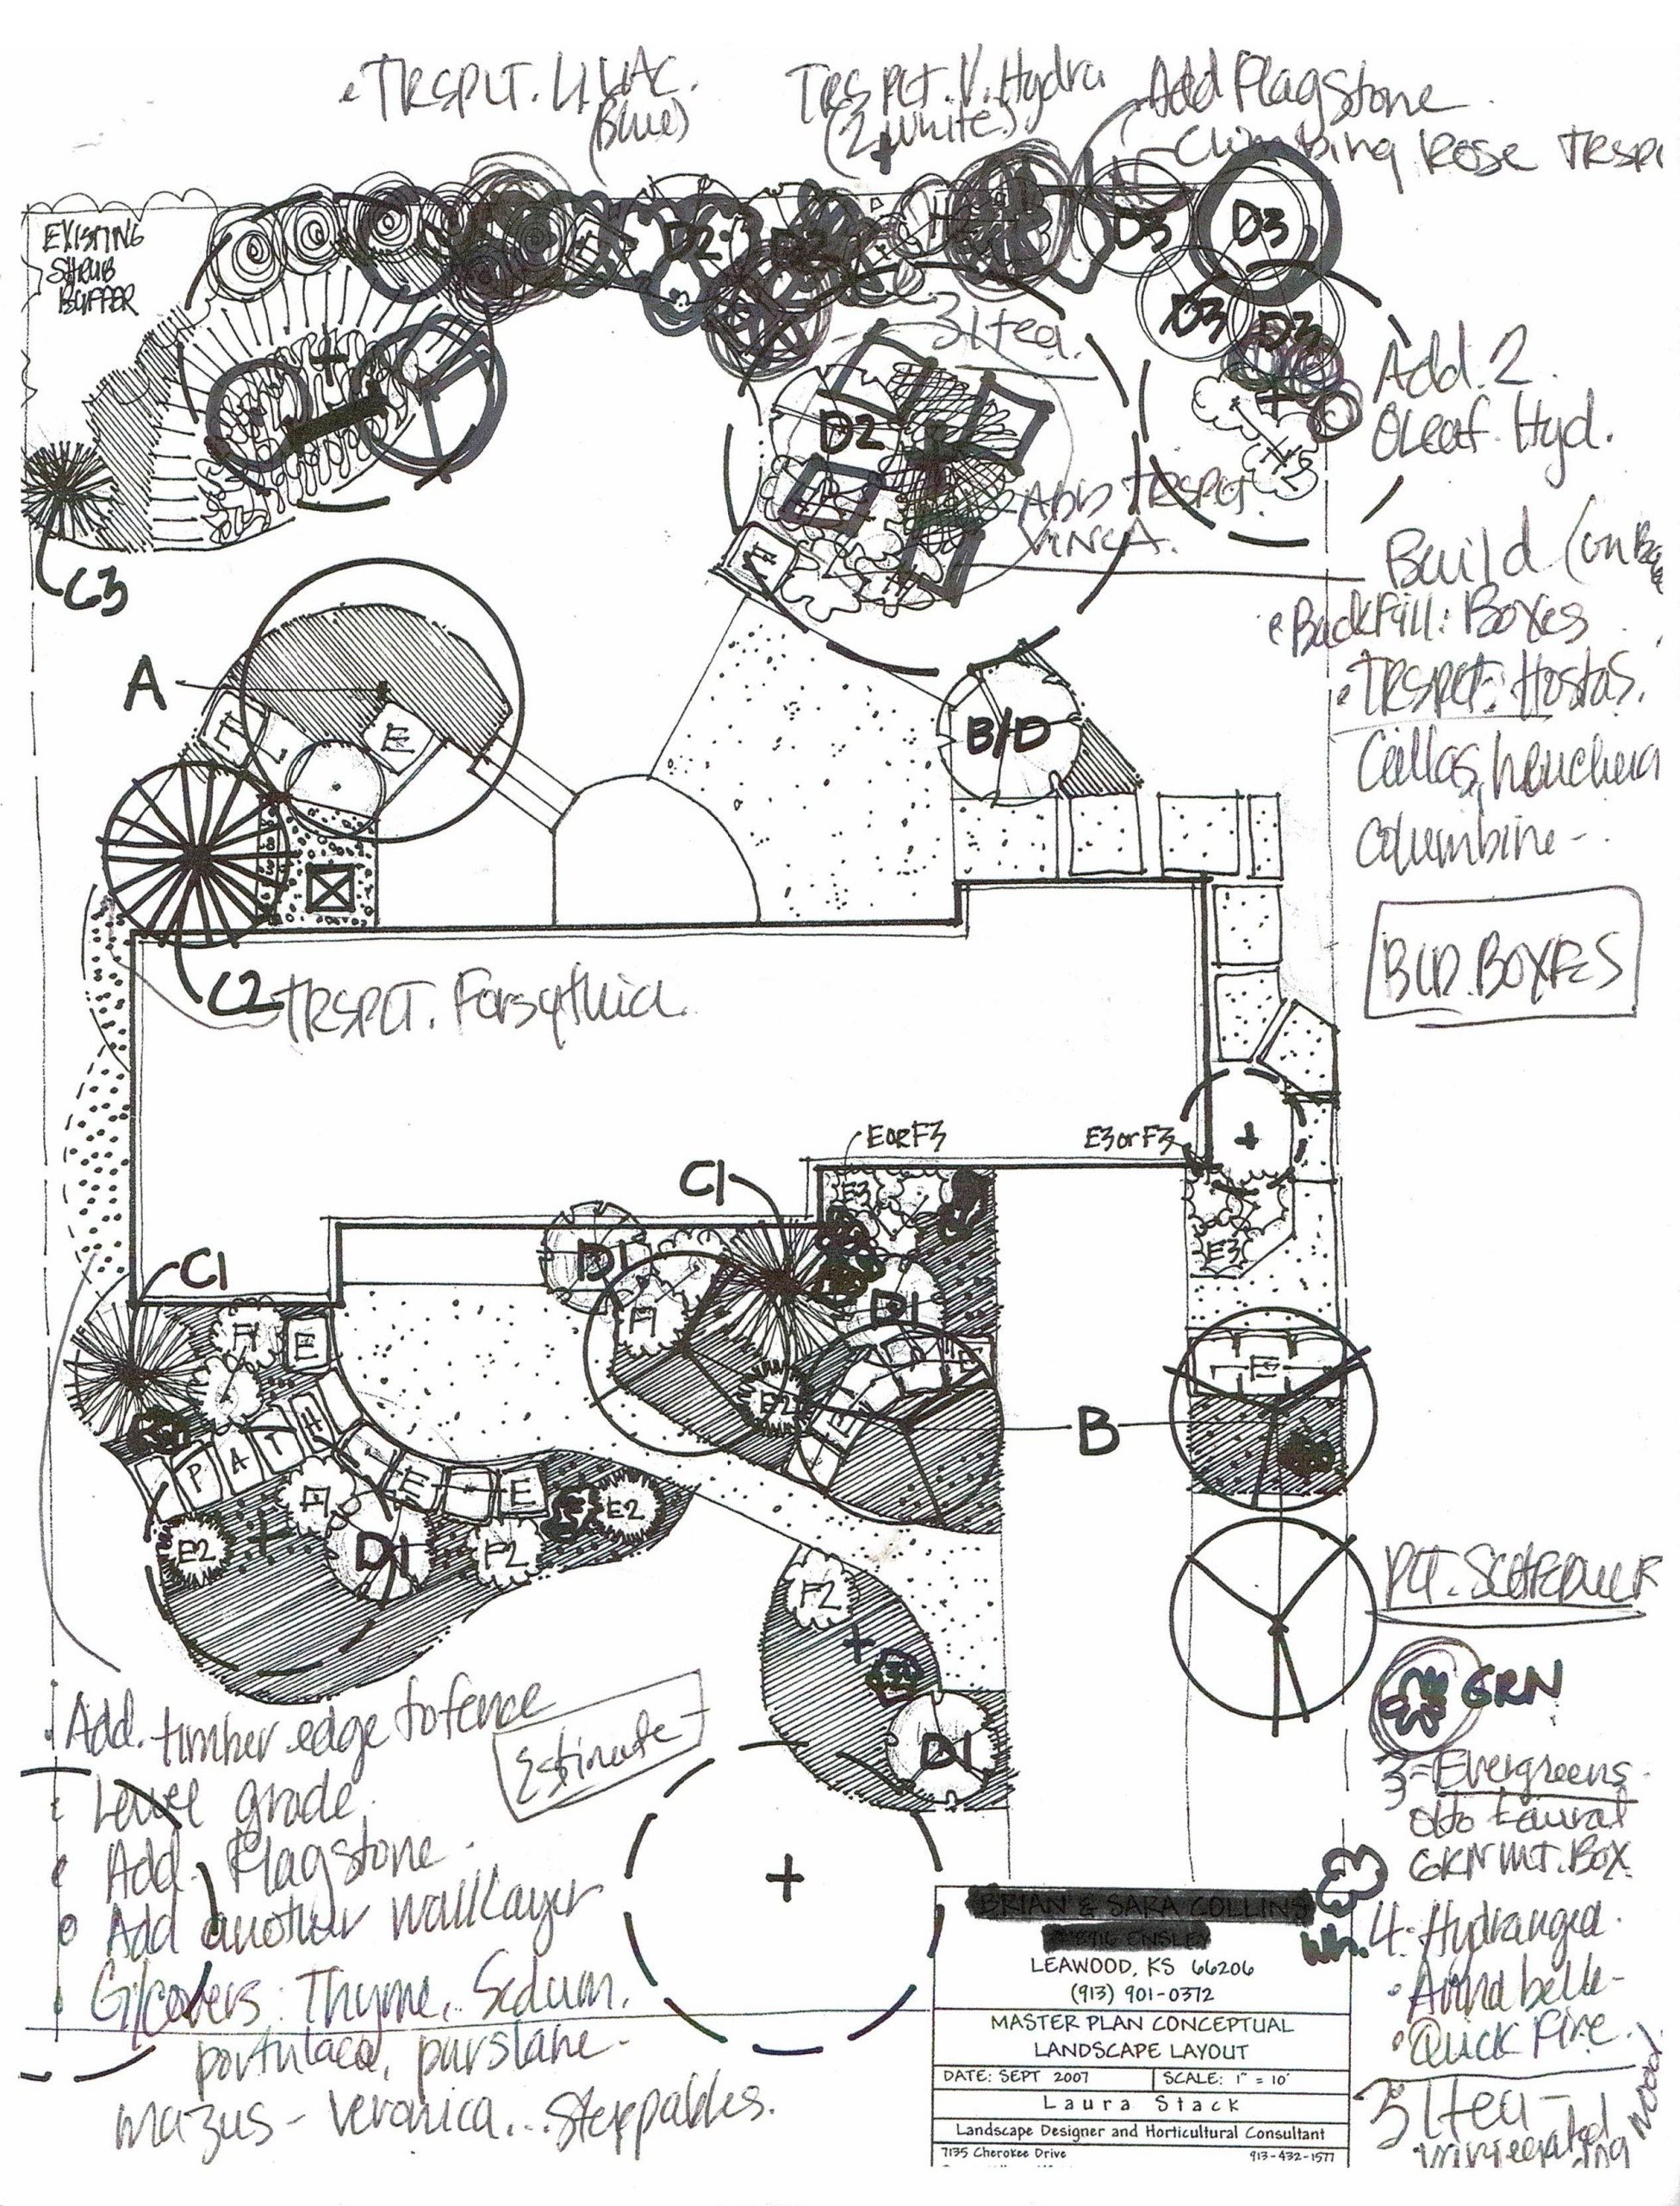 TRSPLT. LILAC.
(Blue)
TRSPLT. V. Hydra
(2 white)
Add Flagstone
Climbing Rose TRSPL
EXISTING
SHRUB
BUFFER
D2
D3
D3
D3
D3
3 Itea.
D2
Add 2
OLeaf. Hyd.
ADD TRSPLT
VINCA.
C3
Build (on
Backfill: Boxes
TRSPLT: Hostas,
heuchera
Columbine -
A
E
B/D
BLD. BOXES
C2
TRSPLT. Forsythia.
EorF3
E3orF3
C1
E3
E3
C1
D1
D1
A
E
E
E2
E
B
PATH
A
E
E
E2
E2
D1
F2
F2
D1
PLT. SCHEDULE
GRN
3 - Evergreens
otto Laural
GRN MT. BOX
Wh. 4 - Hydrangea.
Annabelle -
Quick Fire.
3 Itea -
Add timber edge to fence
Estimate -
Level grade.
Add Flagstone.
Add another wall layer
G/covers: Thyme, Sedum,
portulaca, purslane -
Mazus - Veronica... Steppables.
BRIAN & SARA COLLINS
8916 ENSLEY
LEAWOOD, KS 66206
(913) 901-0372
MASTER PLAN CONCEPTUAL
LANDSCAPE LAYOUT
DATE: SEPT 2007
SCALE: 1" = 10'
Laura Stack
Landscape Designer and Horticultural Consultant
7135 Cherokee Drive
913-432-1577